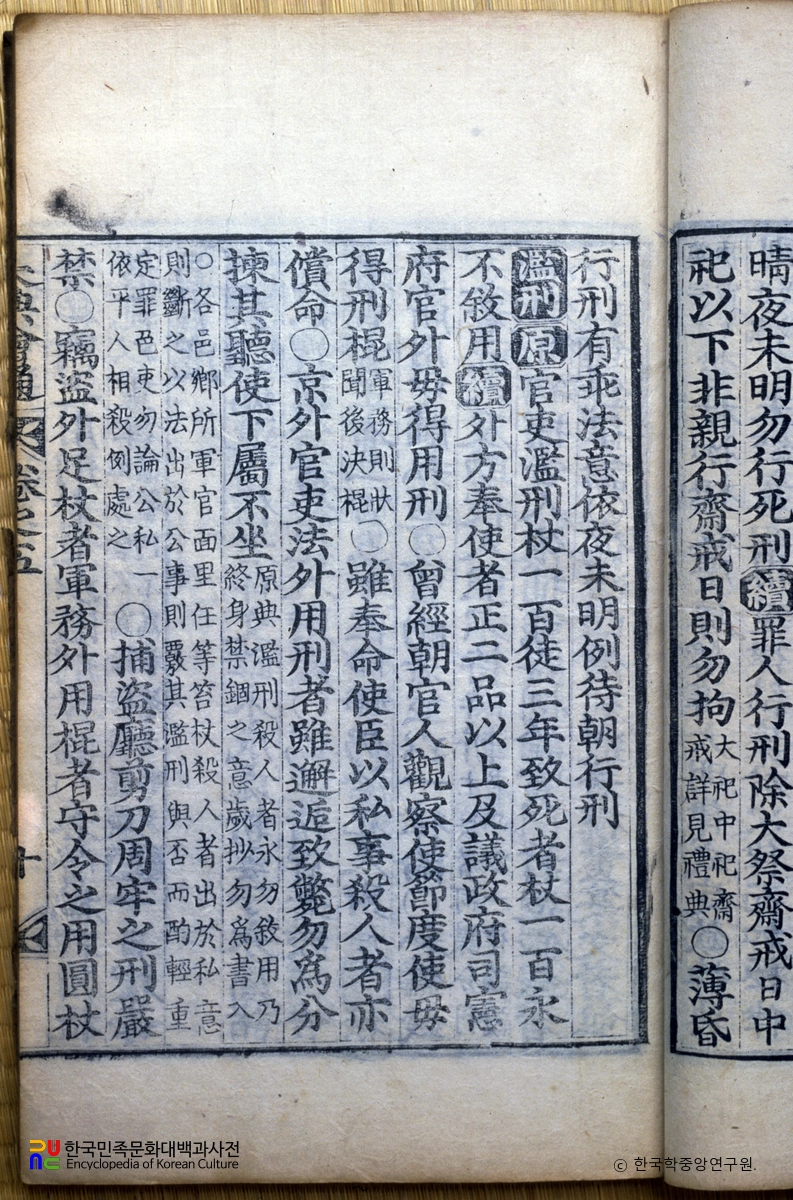 晴夜未明勿行死刑續罪人行刑除大祭齋戒日中
祀以下非親行齋戒日則勿拘大祀中祀齋戒詳見禮典○薄昏
行刑有乖法意依夜未明例待朝行刑
濫刑原官吏濫刑杖一百徒三年致死者杖一百永
不敘用續外方奉使者正二品以上及議政府司憲
府官外毋得用刑○曾經朝官人觀察使節度使毋
得刑棍軍務則狀聞後決棍○雖奉命使臣以私事殺人者亦
償命○京外官吏法外用刑者雖邂逅致斃勿爲分
揀其聽使下屬不坐原典濫刑殺人者永勿敘用乃終身禁錮之意歲抄勿爲書入
○各邑鄕所軍官面里任等笞杖殺人者出於私意則斷之以法出於公事則覈其濫刑與否而酌輕重
定罪邑吏勿論公私一依平人相殺例處之○捕盜廳剪刀周牢之刑嚴
禁○竊盜外足杖者軍務外用棍者守令之用圓杖
大典會通 卷之五 十
한국민족문화대백과사전
Encyclopedia of Korean Culture
ⓒ 한국학중앙연구원.